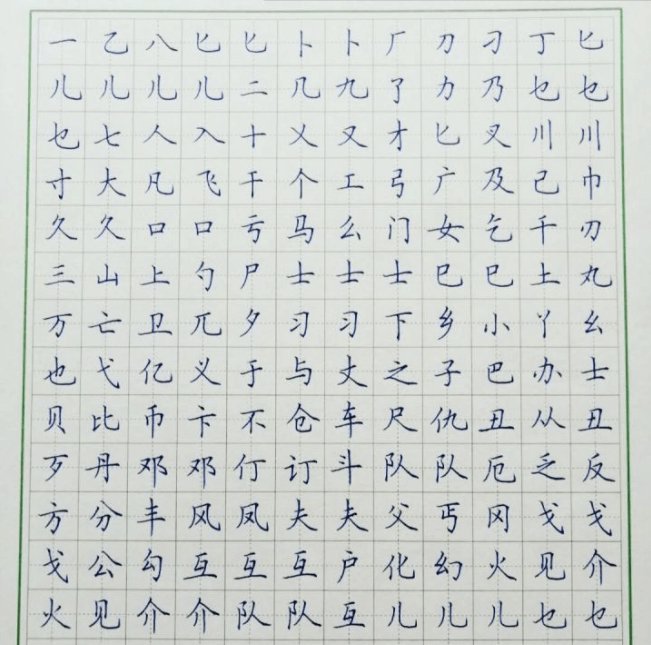 一乙八匕匕卜卜厂刀刁丁匕
儿儿儿儿二几九了力乃乜乜
乜七人入十乂又才匕叉川川
寸大凡飞干个工弓广及己巾
久久口口亏马么门女乞千刃
三山上勺尸士士士巳巳上丸
万亡卫兀夕习习下乡小丫幺
也弋亿义于与丈之子巴办士
贝比币卞不仓车尺仇丑从丑
歹丹邓邓仃订斗队队厄乏反
方分丰风凤夫夫父丐冈戈戈
戈公勾互互互户化幻火见介
火见介介队队互儿儿儿乜乜